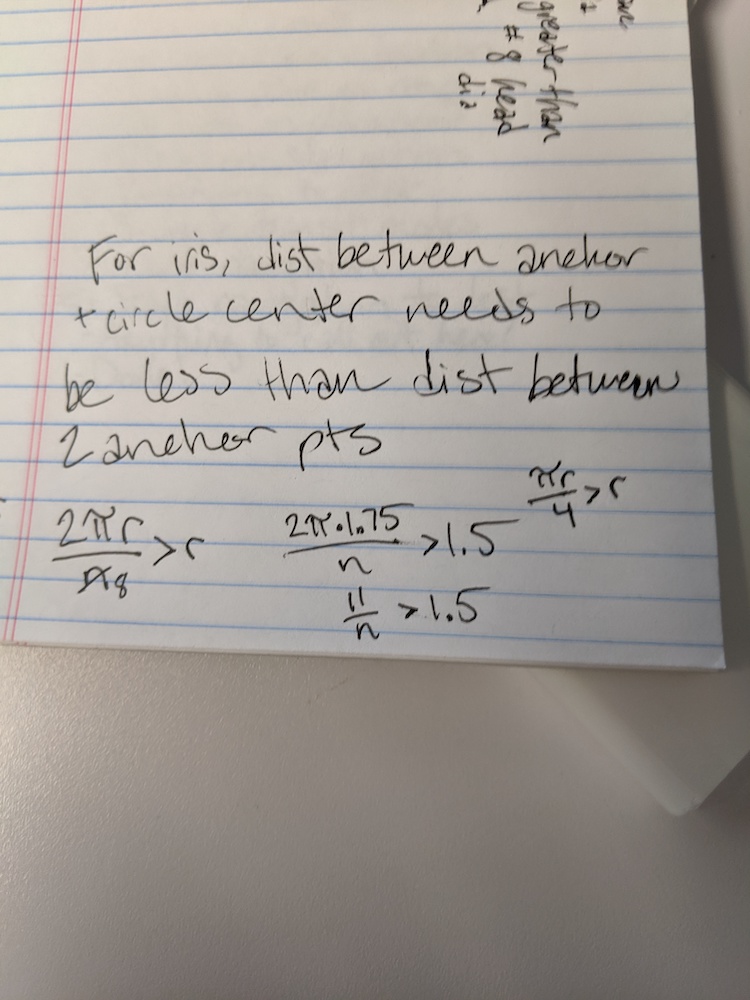 greater than
# 8 head
dia
For iris, dist between anchor
+ circle center needs to
be less than dist between
2 anchor pts
πr/4 > r
2πr/8 > r
2π·1.75/n > 1.5
11/n > 1.5